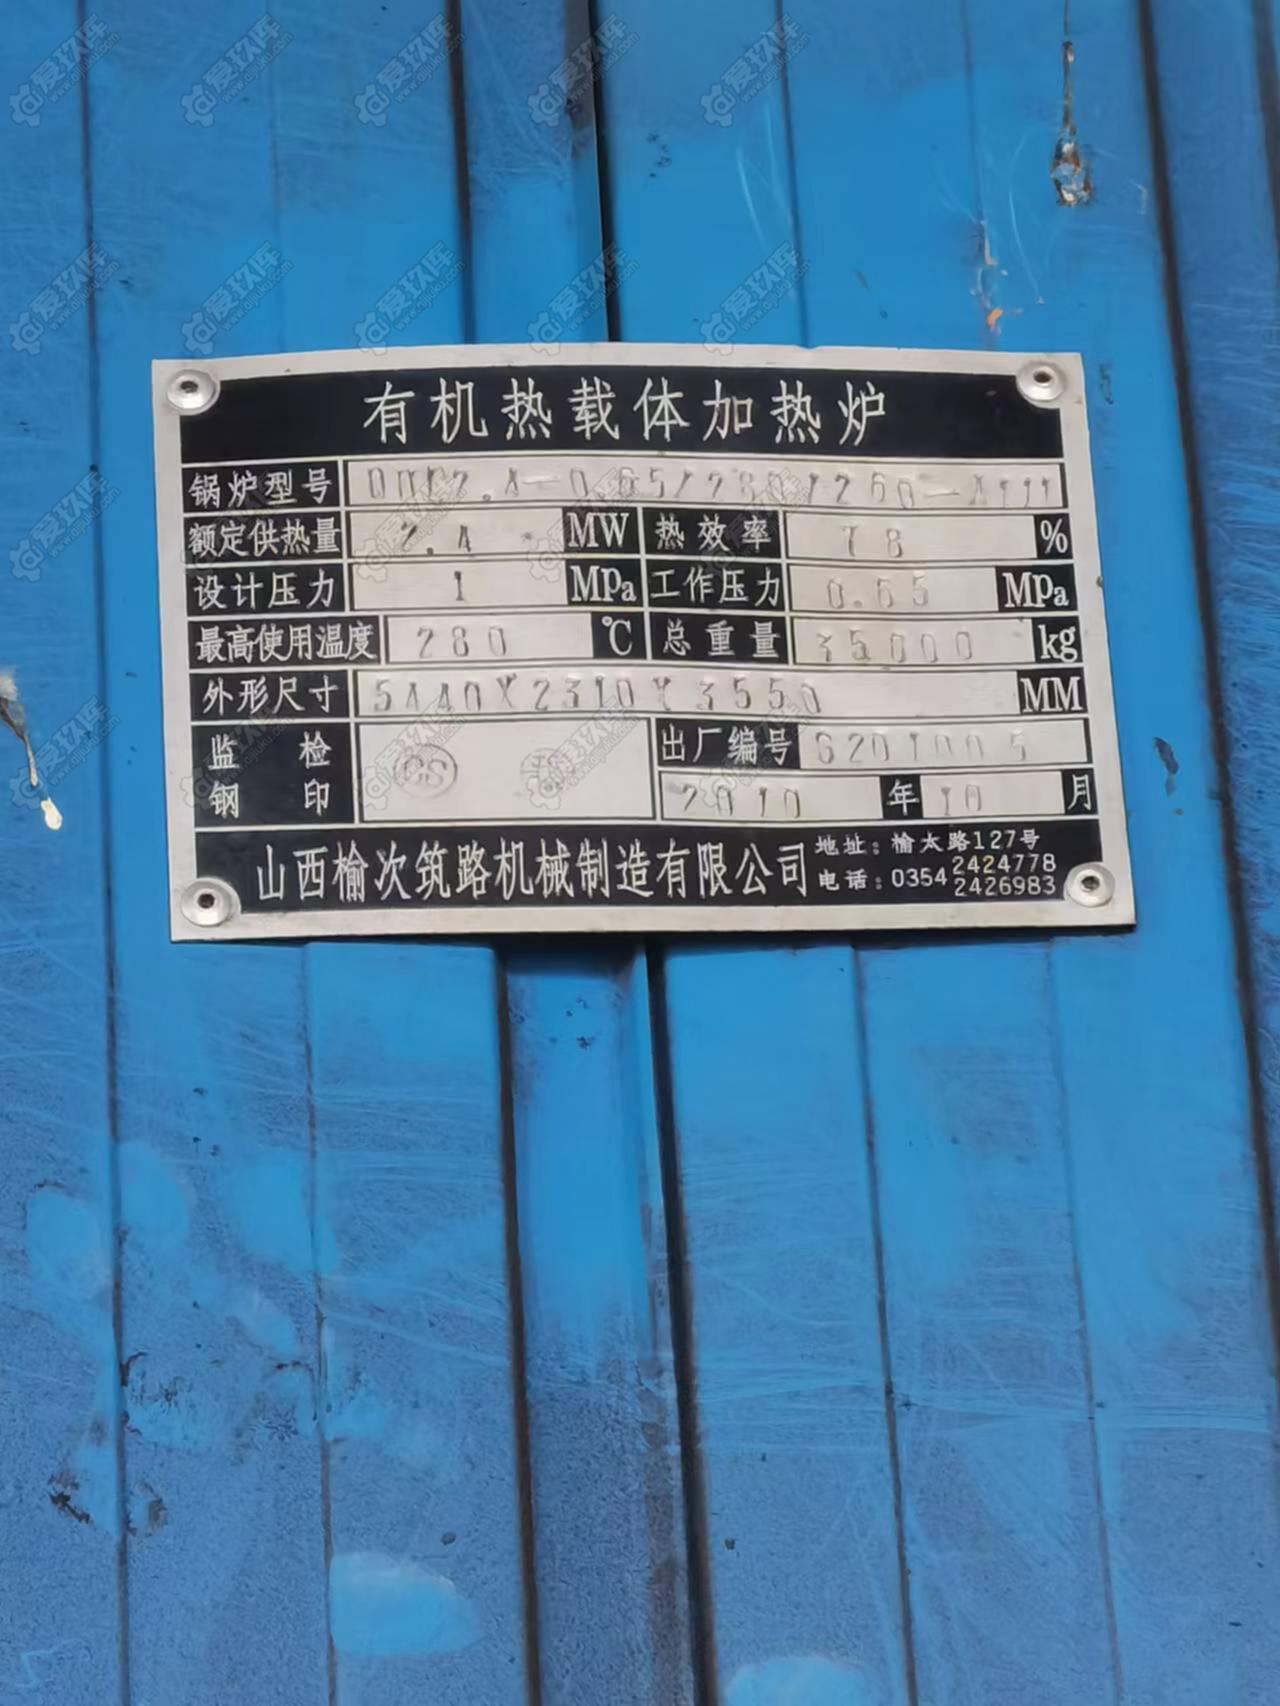 有机热载体加热炉
锅炉型号
额定供热量 2.4 MW 热效率 78 %
设计压力 1 MPa 工作压力 0.65 MPa
最高使用温度 280 ℃ 总重量 35000 kg
外形尺寸 5440X2310X3550 MM
监检 CS 出厂编号 G201005
钢印 2010 年 10 月
山西榆次筑路机械制造有限公司
地址：榆太路127号
电话：0354 2424778
2426983
爱玖库
www.aijiuku.com